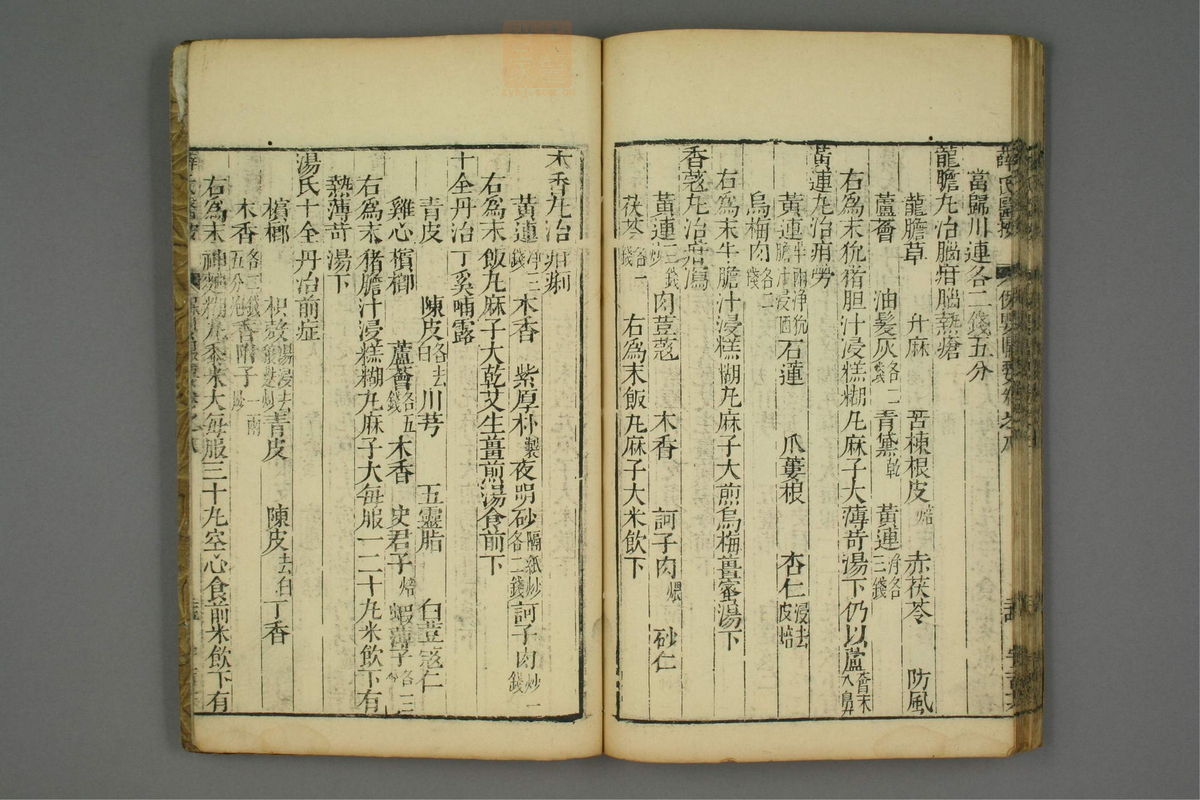 薛氏醫按
當歸川連各二錢五分
龍膽丸治腦疳腦熱瘡
龍膽草 升麻 苦楝根皮焙 赤茯苓 防風
蘆薈 油髮灰各二錢 青黛乾 黃連淨各三錢
右為末㹠猪胆汁浸糕糊丸麻子大薄苛湯下仍以蘆薈末入鼻
黃連丸治疳勞
黃連半兩淨㹠膽汁浸晒 石蓮 瓜蔞根 杏仁浸去皮焙
烏梅肉各二錢
右為末牛膽汁浸糕糊丸麻子大煎烏梅薑蜜湯下
香蔻丸治疳瀉
黃連三錢炒 肉荳蔻 木香 訶子肉煨 砂仁
茯苓各一錢 右為末飯丸麻子大米飲下
木香丸治疳痢
黃連淨三錢 木香 紫厚朴製 夜明砂隔紙炒各二錢 訶子肉炒一錢
右為末飯丸麻子大乾艾生薑煎湯食前下
十全丹治丁奚哺露
青皮 陳皮各去白 川芎 五靈脂 白荳蔻仁
雞心檳榔 蘆薈各五錢 木香 史君子焙 蝦蟇
右為末猪膽汁浸糕糊丸麻子大每服一二十丸米飲下有
熱薄苛湯下
湯氏十全丹治前症
檳榔 枳殼湯浸去 青皮 陳皮去白 丁香
木香各三錢五分 香附子
右為末神麴糊丸黍米大每服三十丸空心食前米飲下有